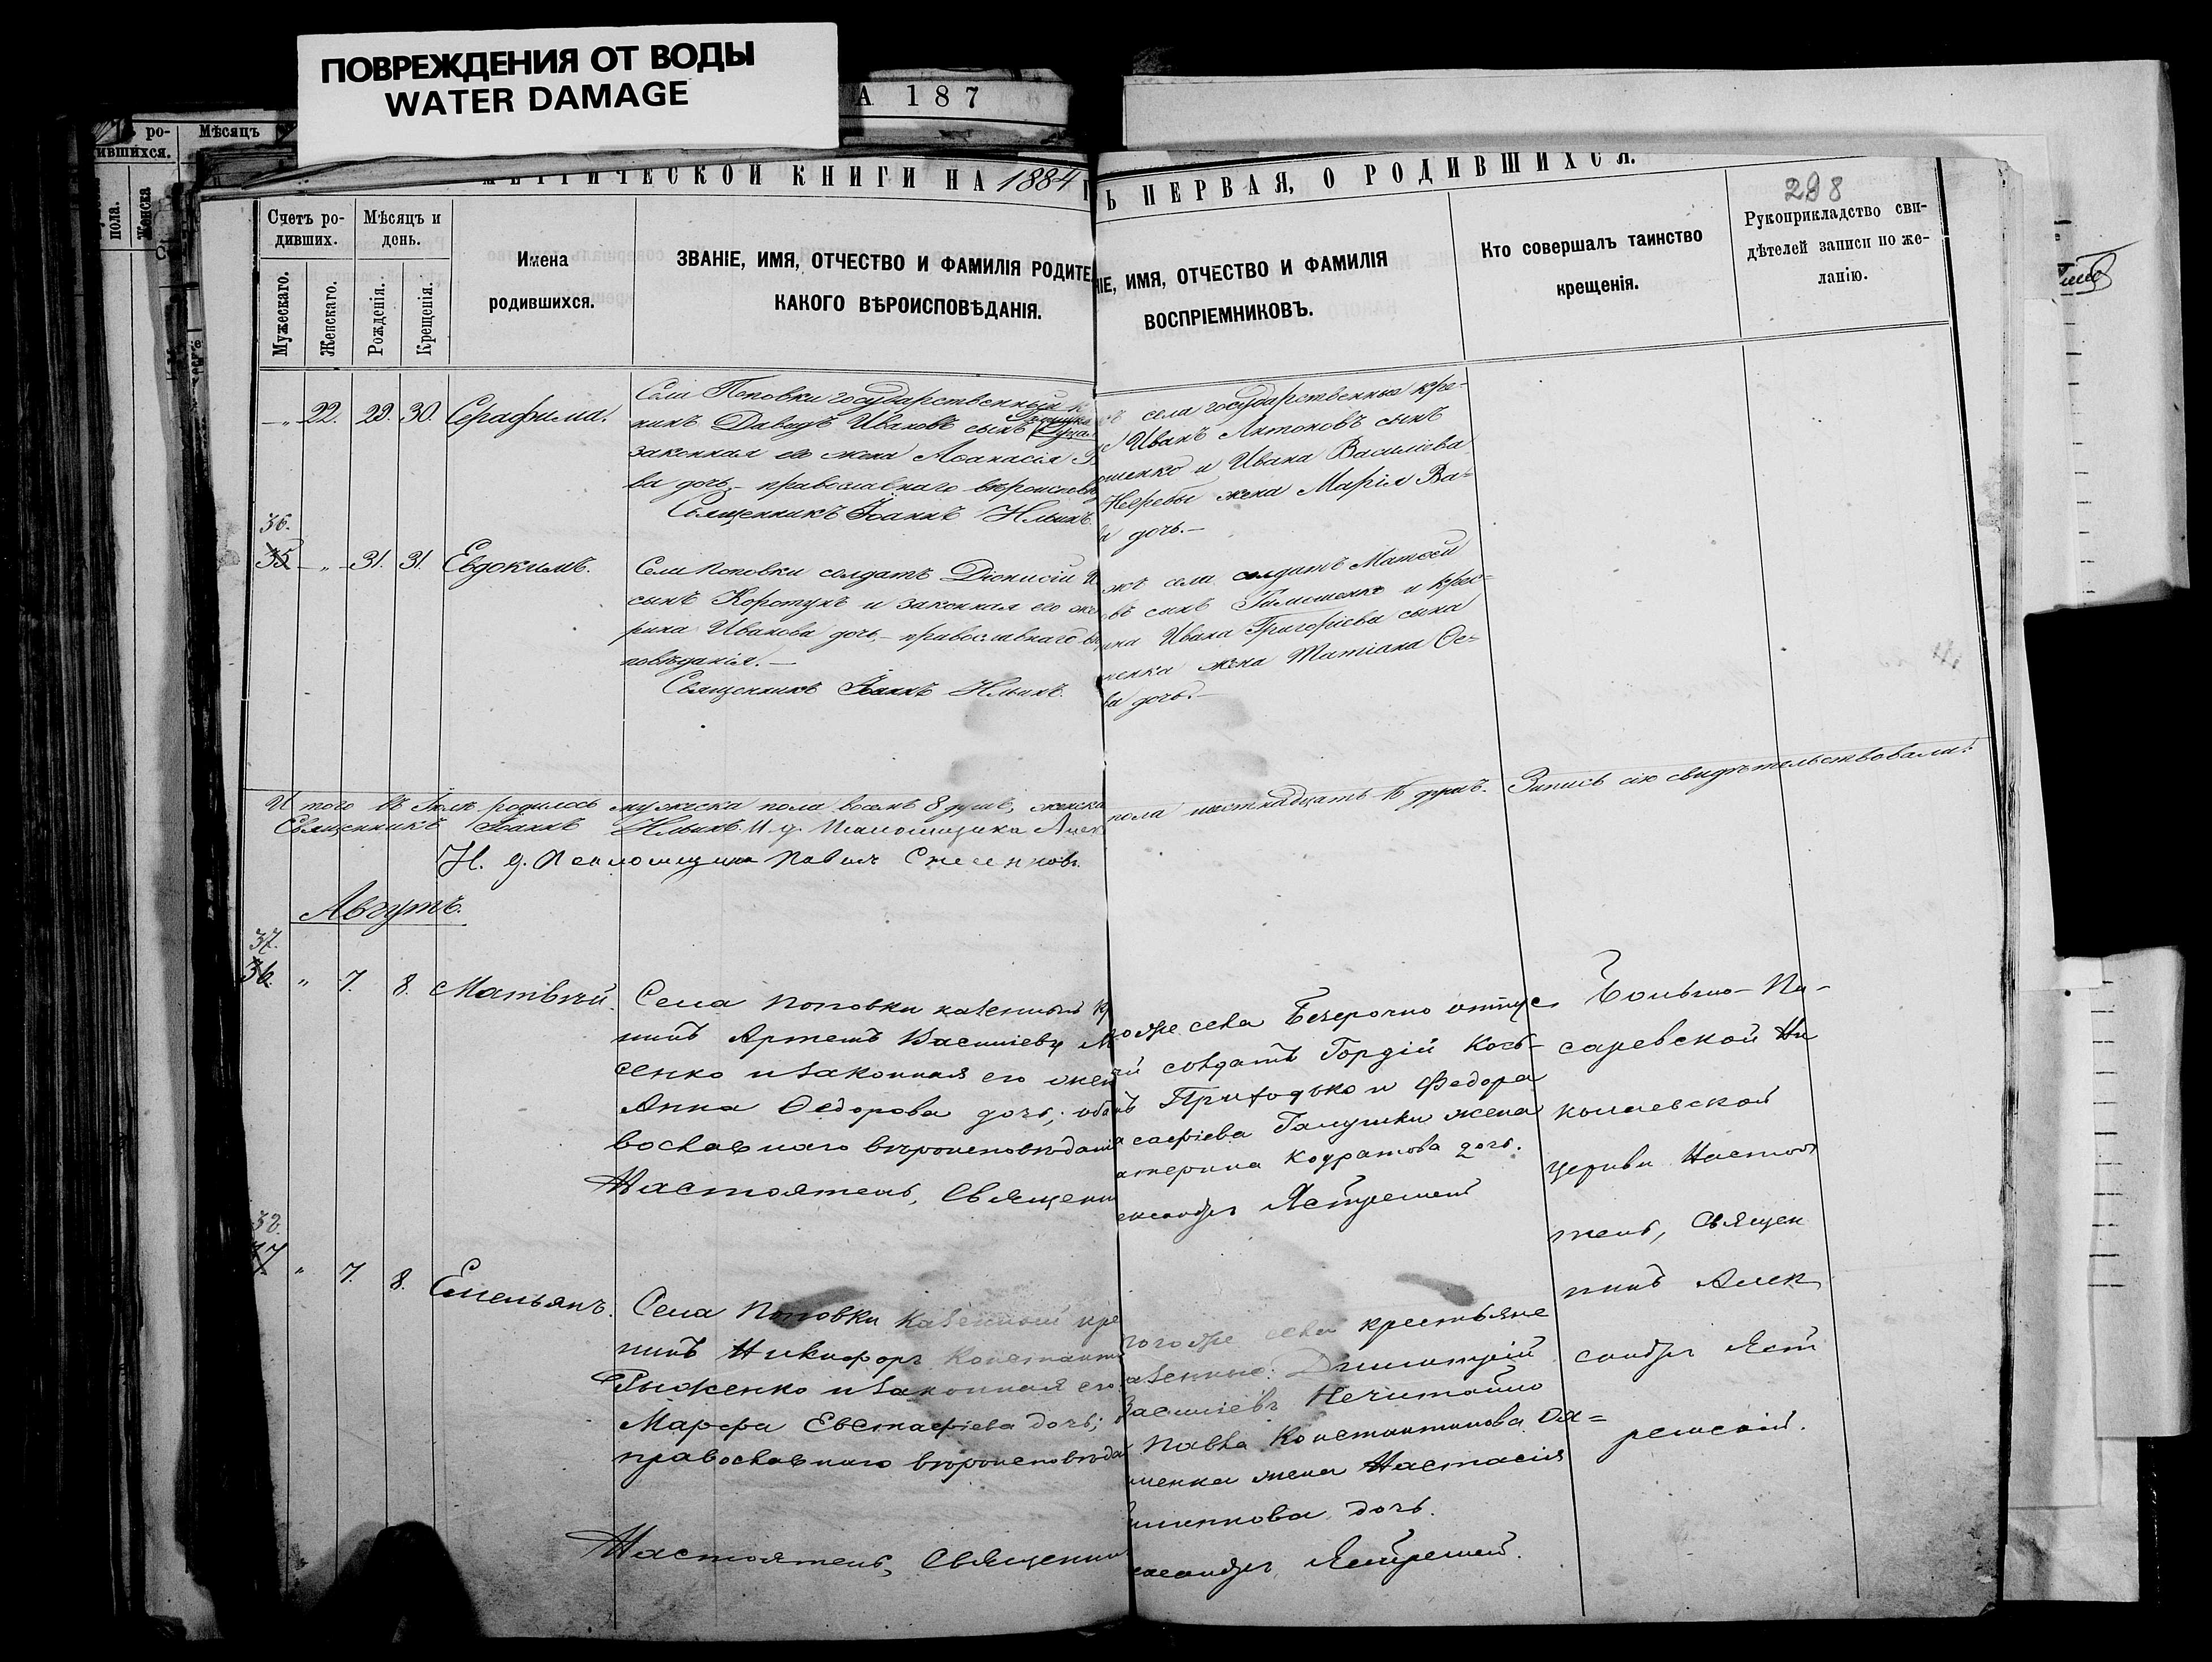 ПОВРЕЖДЕНИЯ ОТ ВОДЫ
WATER DAMAGE
А 187
ро-
ившихся.
Мѣсяцъ
пола.
Женска
МЕТРИЧЕСКОЙ КНИГИ НА 1884
Ь ПЕРВАЯ, О РОДИВШИХСЯ.
298
Счетъ ро-
дившихъ.
Мѣсяцъ и
день.
Мужескаго.
Женскаго.
Рожденія.
Крещенія.
Имена
родившихся.
ЗВАНІЕ, ИМЯ, ОТЧЕСТВО И ФАМИЛІЯ РОДИТЕ
КАКОГО ВѢРОИСПОВѢДАНІЯ.
НІЕ, ИМЯ, ОТЧЕСТВО И ФАМИЛІЯ
ВОСПРІЕМНИКОВЪ.
Кто совершалъ таинство
крещенія.
Рукоприкладство сви-
дѣтелей записи по же-
ланію.
22. 29. 30. Серафима.
Села Поповки государственный к
нинъ Давидъ Ивановъ сынъ
законная его жена Аѳанасія В
ва дочь – православнаго вѣроисповѣ
Священникъ Іоаннъ Ильинъ.
села государственные кре-
Иванъ Антоновъ сынъ
шенко и Ивана Василіева
жена Марія Ва-
а дочь.–
36.
35 „ 31. 31. Евдокимъ.
Села Поповки солдатъ Діонисій И
сынъ Коротунъ и законная его же
рина Иванова дочь, – православнаго вѣ
повѣданія. –
Священникъ Іоаннъ Ильинъ.
жъ села солдатъ Матѳей
въ сынъ Тимошенко и кре-
ина Ивана Григоріева сына
ненка жена Татіана Ос-
ва дочь. –
И того въ Іюлѣ родилось мужеска пола восемь 8 душъ, женска
пола шестнадцать 16 душъ. Запись сію свидѣтельствовали:
Священникъ Іоаннъ Ильинъ И. д. Псаломщика Алек
И. д. Псаломщика Павелъ
Августъ.
37.
36. „ 7. 8. Матвѣй.
Села Поповки казенный кр
нинъ Артемъ Василіевъ М
сенко и законная его жен
Анна Ѳедорова дочь; оба
вославнаго вѣроисповѣдані
Настоятель, Священни
оже села Безсрочно отпус
й солдатъ Гордій Козь-
ъ Приходько и Федора
сафіева Галушки жена
атерина Кодратова дочь.
ександръ Ястремскій
Больше-Пи-
саревской Ни
колаевской
церкви Настоя
тель, Священ
никъ Алек
сандръ Яст
ремскій.
38.
37 „ 7. 8. Емельянъ.
Села Поповки казенный кре
нинъ Никифоръ Константи
Рыженко и законная его
Марфа Евстафіева дочь;
православнаго вѣроисповѣда
Настоятель, Священни
тогоже села крестьяне
азенные: Дмитрій
Василіевъ Нечитайло
Павла Константинова Оя=
менка жена Настасія
дочь.
ександръ Ястремскій.